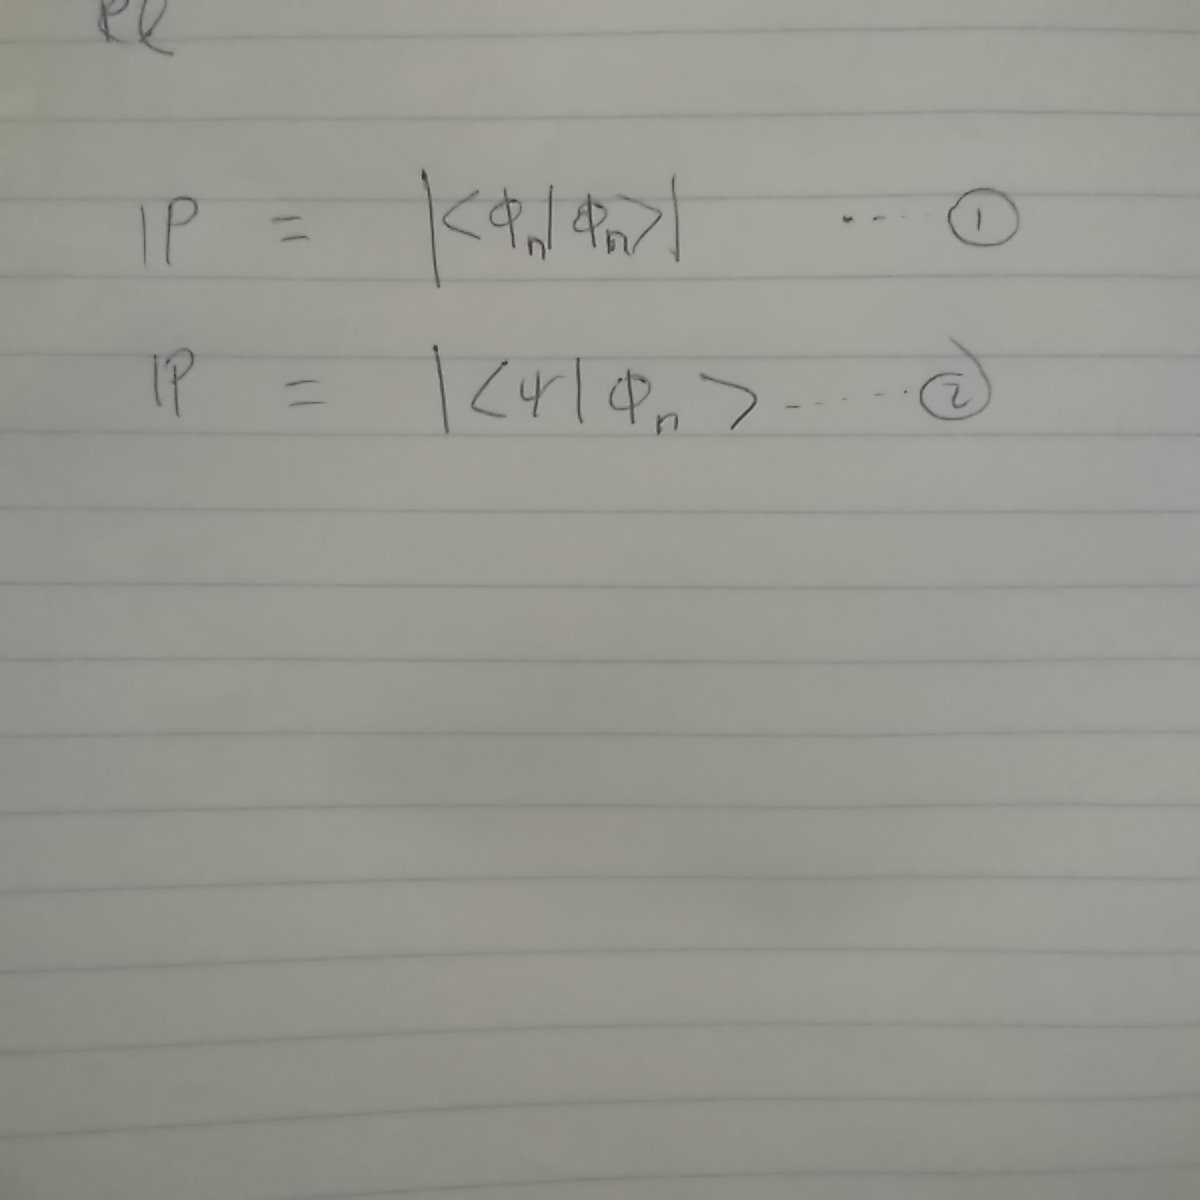 Rl
ℙ = |<φₙ|φₙ>| ... ①
ℙ = |<ψ|φₙ> ...... ②